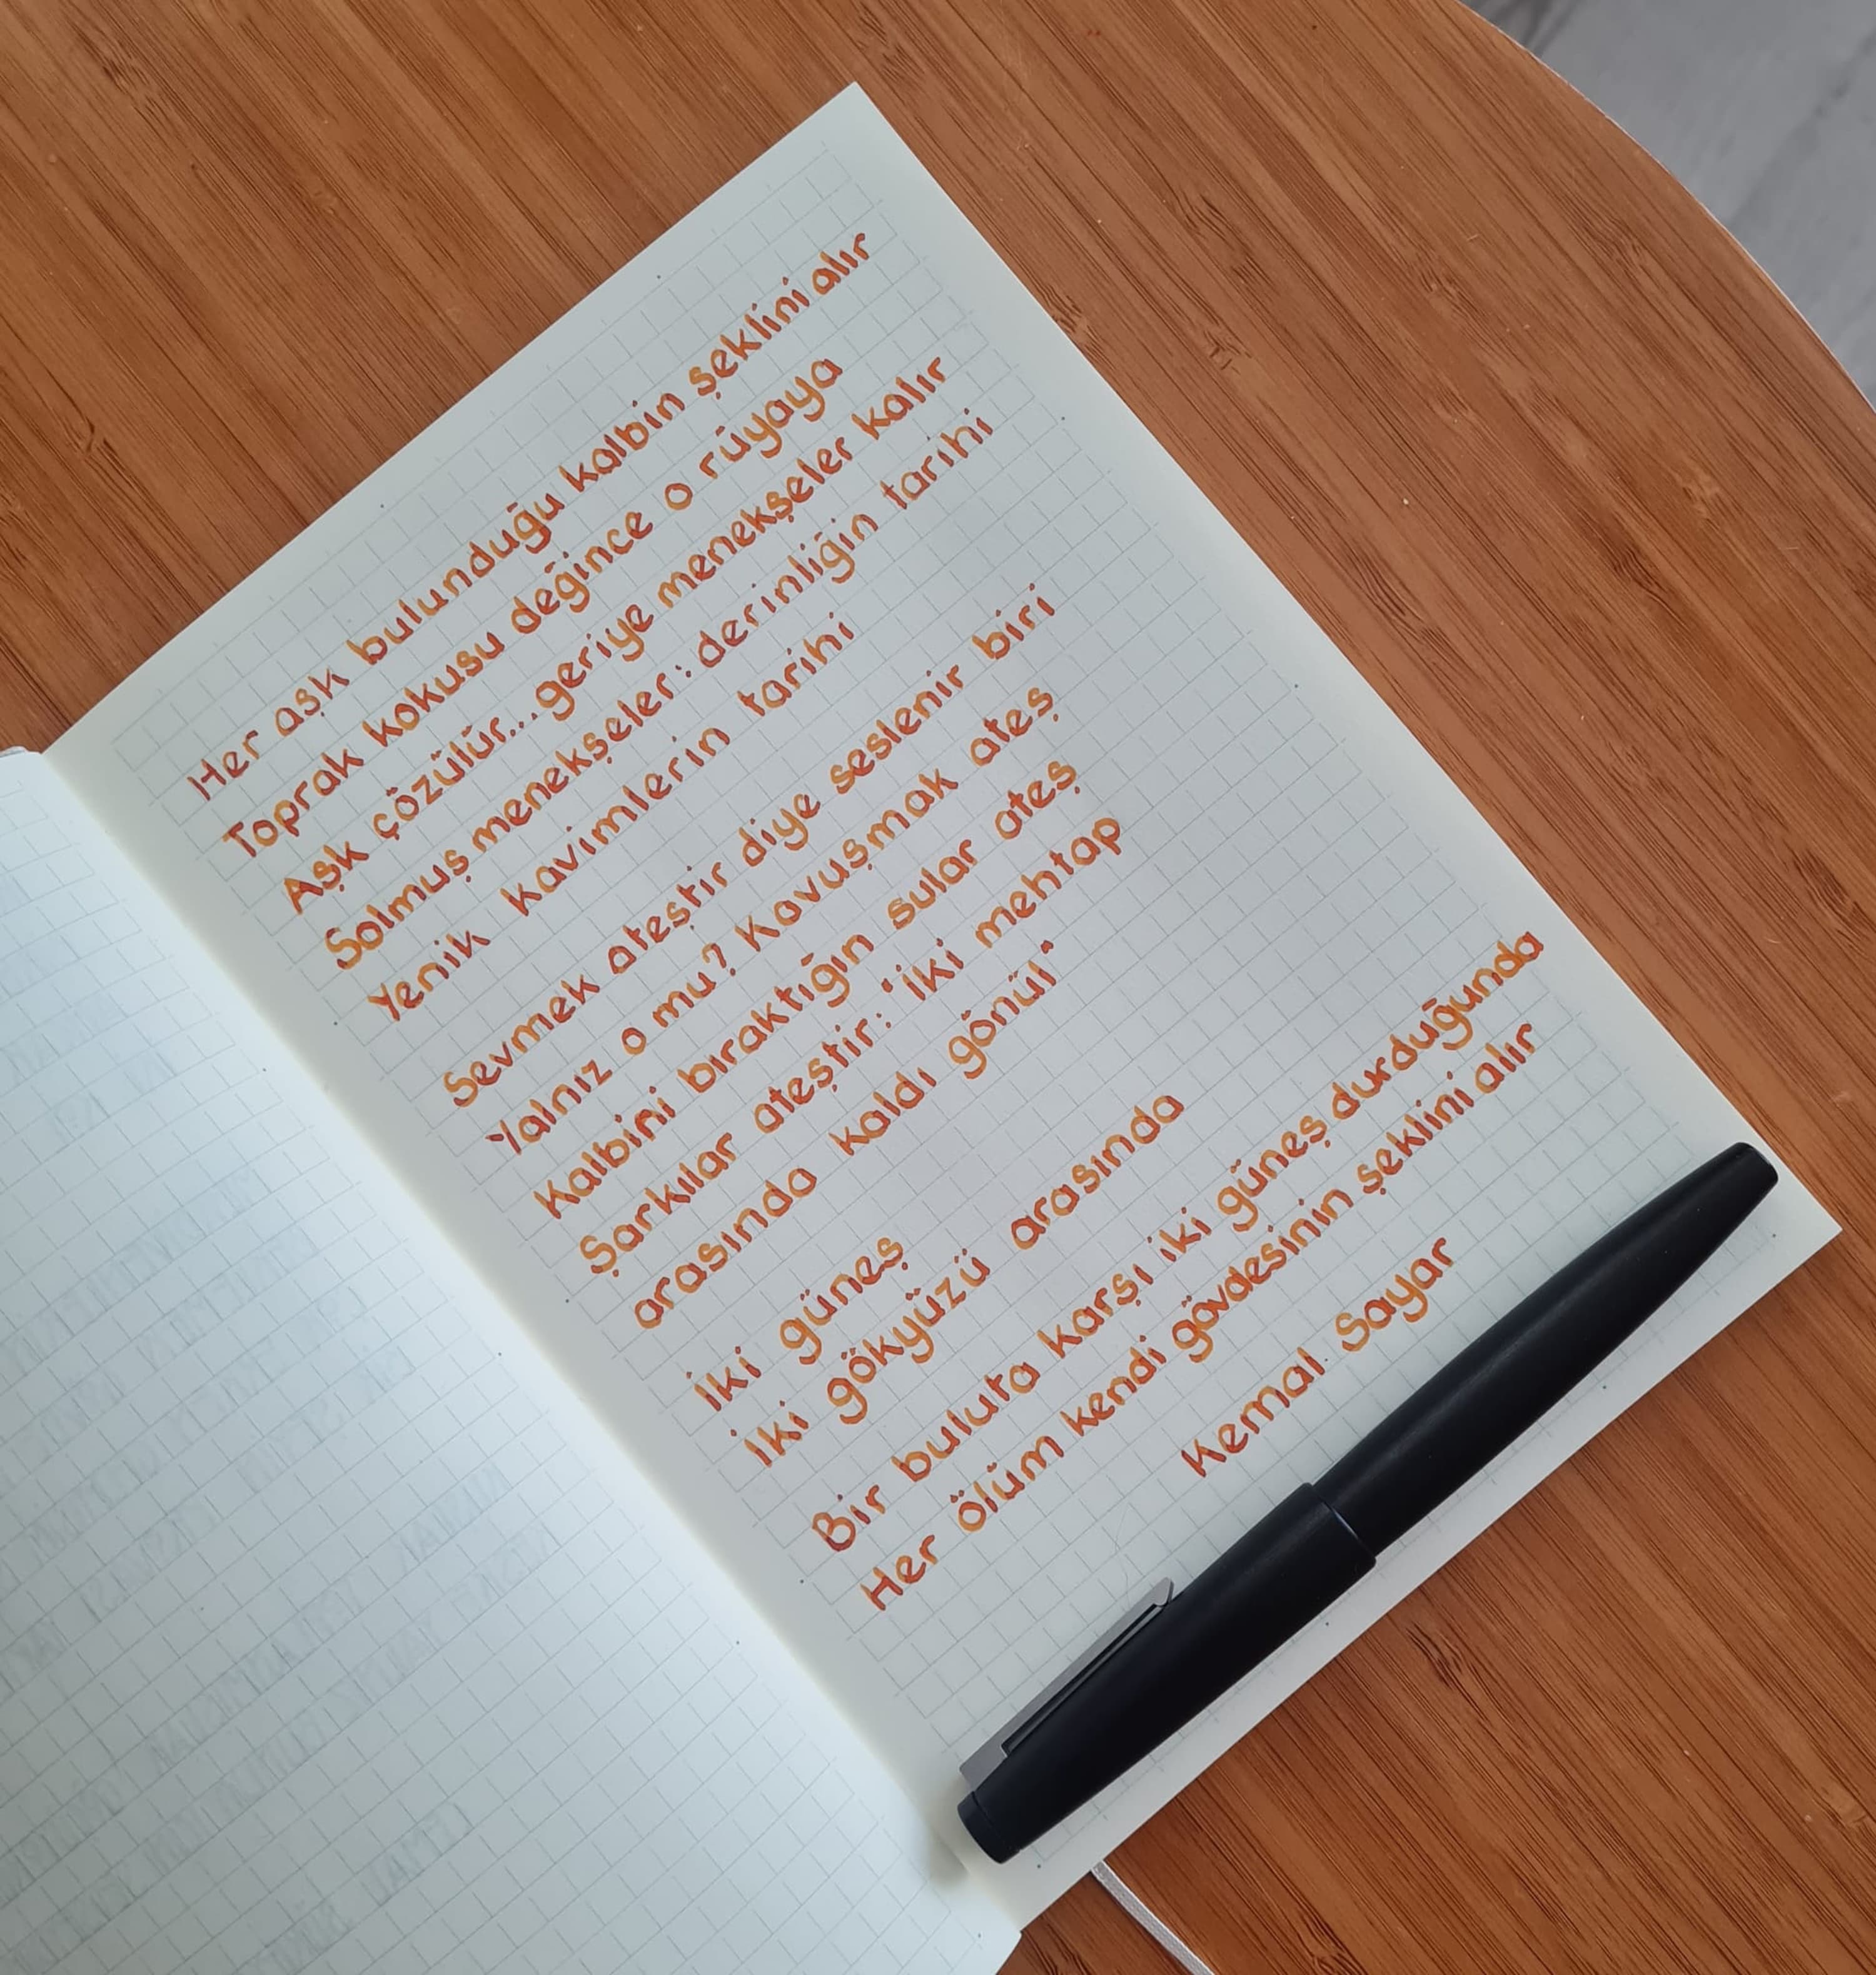 Her aşk bulunduğu kalbin şeklini alır
Toprak kokusu değince o rüyaya
Aşk çözülür...geriye menekşeler kalır
Solmuş menekşeler: derinliğin tarihi
Yenik kavimlerin tarihi
Sevmek ateştir diye seslenir biri
Yalnız o mu? Kavuşmak ateş
Kalbini bıraktığın sular ateş
Şarkılar ateştir: "İki mehtap
arasında kaldı gönül"
İki güneş
İki gökyüzü arasında
Bir buluta karşı iki güneş durduğunda
Her ölüm kendi gövdesinin şeklini alır
Kemal Sayar